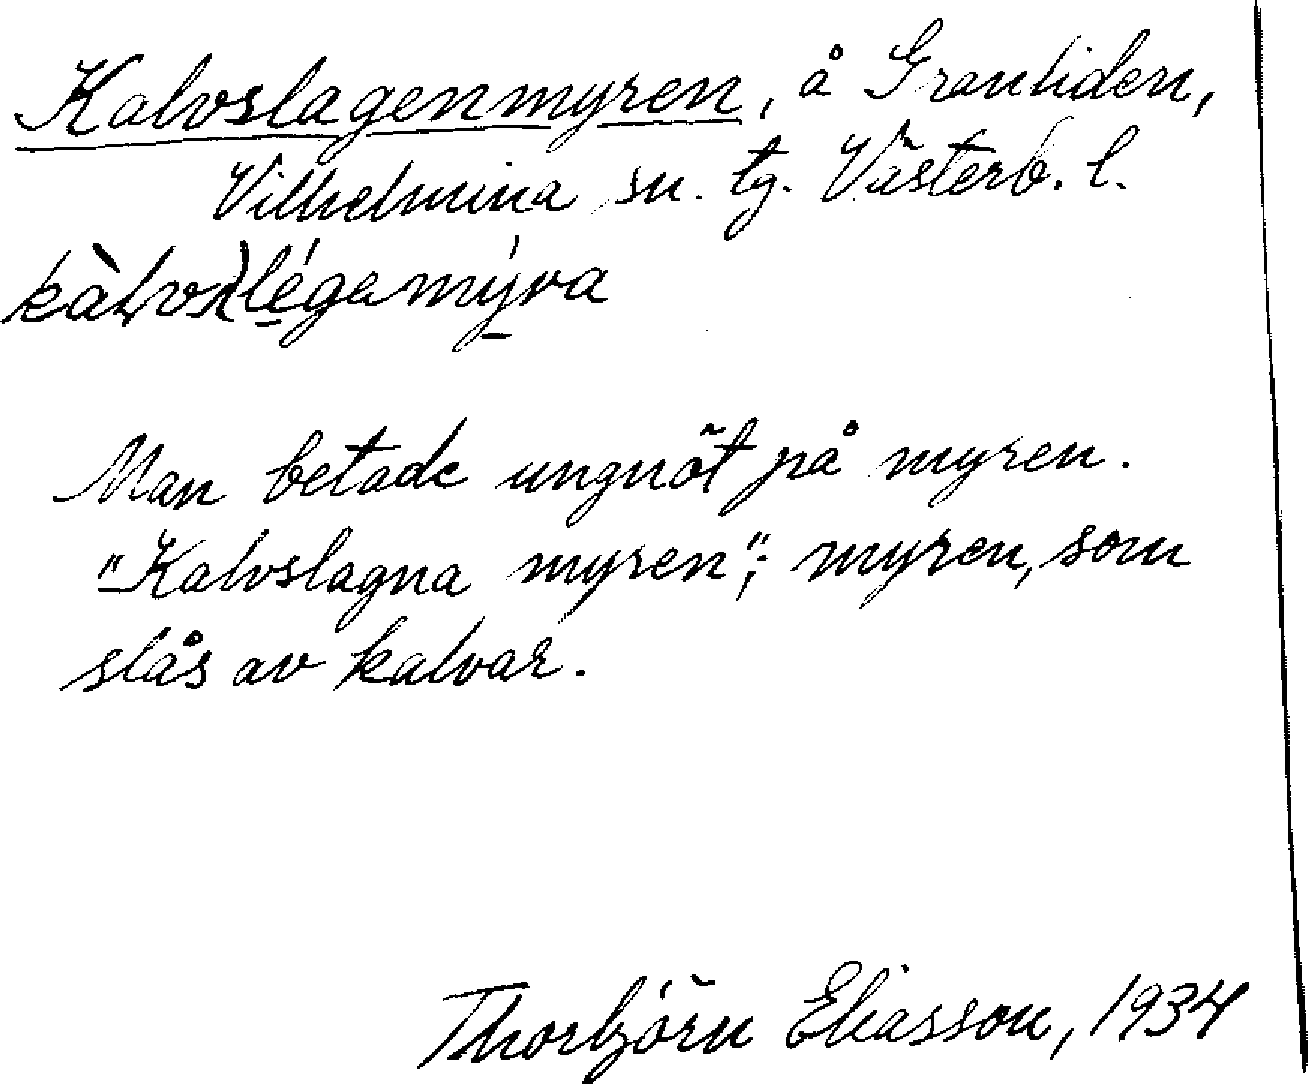 Kalvslagenmyren, å Granliden,
Vilhelmina sn. tg. Västerb. l.
Man betade ungnöt på myren.
"Kalvslagna myren"; myren, som
slås av kalvar.
Thorbjörn Eliasson, 1934